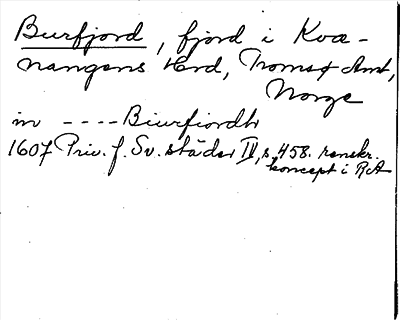 Burfjord, fjord i Kvæ-
nangens Hrd, Tromsø Amt,
Norge
in ---- Biurfiordh
1607 Priv. f. Sv. städer IV, s. 458. renskr.
koncept i RA